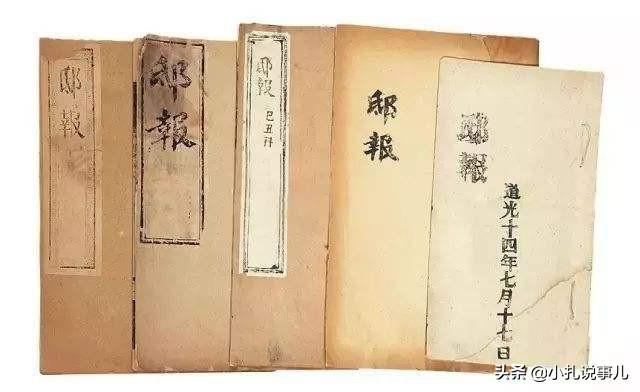 邸報
邸報
邸報
己丑
邸報
邸報
道光十四年七月十七日
头条 @小扎说事儿